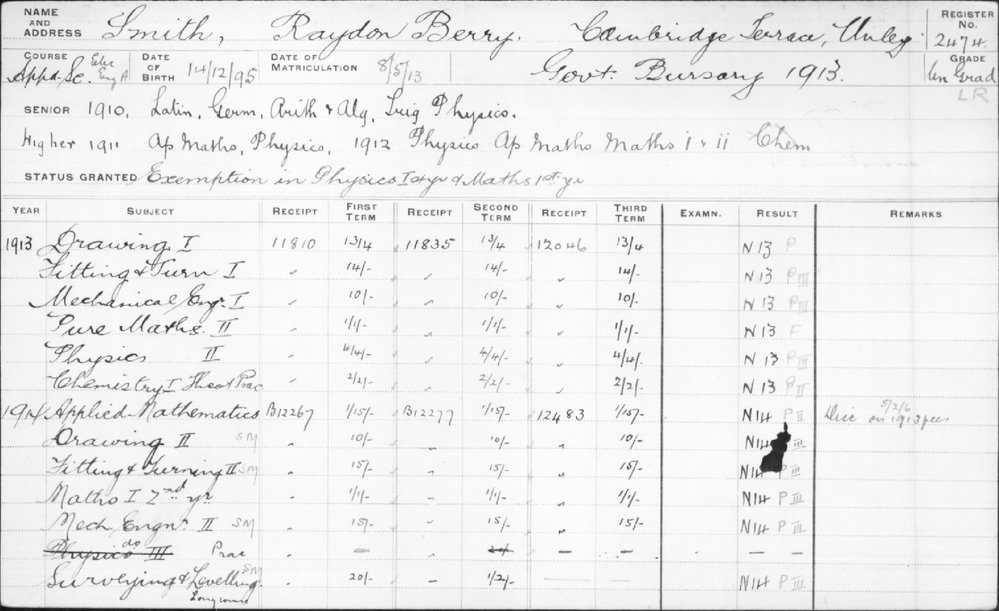 NAME AND ADDRESS Smith, Raydon Berry. Cambridge Terrace, Unley REGISTER No. 2474.
COURSE Appd. Sc. Elec Eng A DATE OF BIRTH 14/12/95 DATE OF MATRICULATION 8/5/13 Govt. Bursary 1913. GRADE Un Grad
LR
SENIOR 1910. Latin, Germ, Arith & Alg, Trig Physics.
Higher 1911 Ap Maths, Physics, 1912 Physics Ap Maths Maths i & ii Chem
STATUS GRANTED Exemption in Physics I yr & Maths 1st yr
YEAR SUBJECT RECEIPT FIRST TERM RECEIPT SECOND TERM RECEIPT THIRD TERM EXAMN. RESULT REMARKS
1913 Drawing I 11810 13/4 11835 13/4 12046 13/4 N 13 P
Fitting & Turn I " 14/- " 14/- " 14/- N 13 P III
Mechanical Engr. I " 10/- " 10/- " 10/- N 13 P III
Pure Maths. II " 1/1/- " 1/1/- " 1/1/- N 13 F
Physics II " 4/4/- " 4/4/- " 4/4/- N 13 P III
Chemistry I Theo & Prac " 2/2/- " 2/2/- " 2/2/- N 13 P II
1914 Applied Mathematics B12267 1/15/- B12277 1/15/- 12483 1/15/- N14 P II Due on 1913 fees 5/2/6
Drawing II SM " 10/- " 10/- " 10/- N14 III
Fitting & Turning II SM " 15/- " 15/- " 15/- N14 P III
Maths I 2nd yr " 1/1/- " 1/1/- " 1/1/- N14 P III
Mech Engnr II SM " 15/- " 15/- " 15/- N14 P III
Physics III do Prac " — " — — — —
Surveying & Levelling SM 20/- — 1/2/- — — N14 P III
Long course